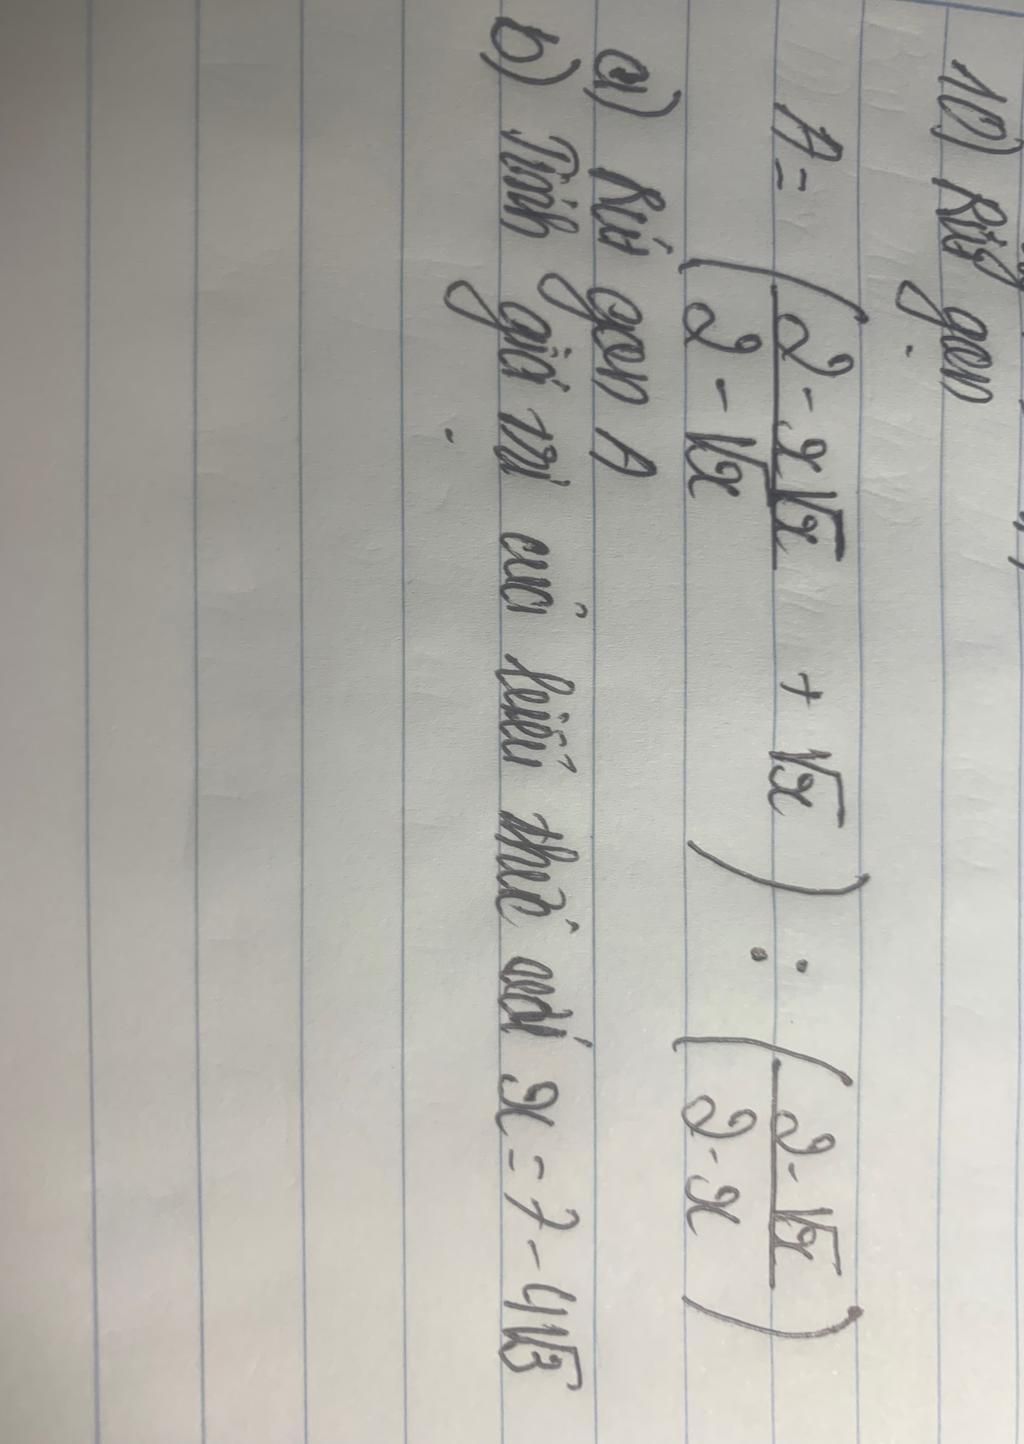 10) Rút gọn
A = ( (2 - x√x) / (2 - √x) + √x ) : ( (2 - √x) / (2 - x) )
a) Rút gọn A
b) Tính giá trị của biểu thức với x = 7 - 4√3